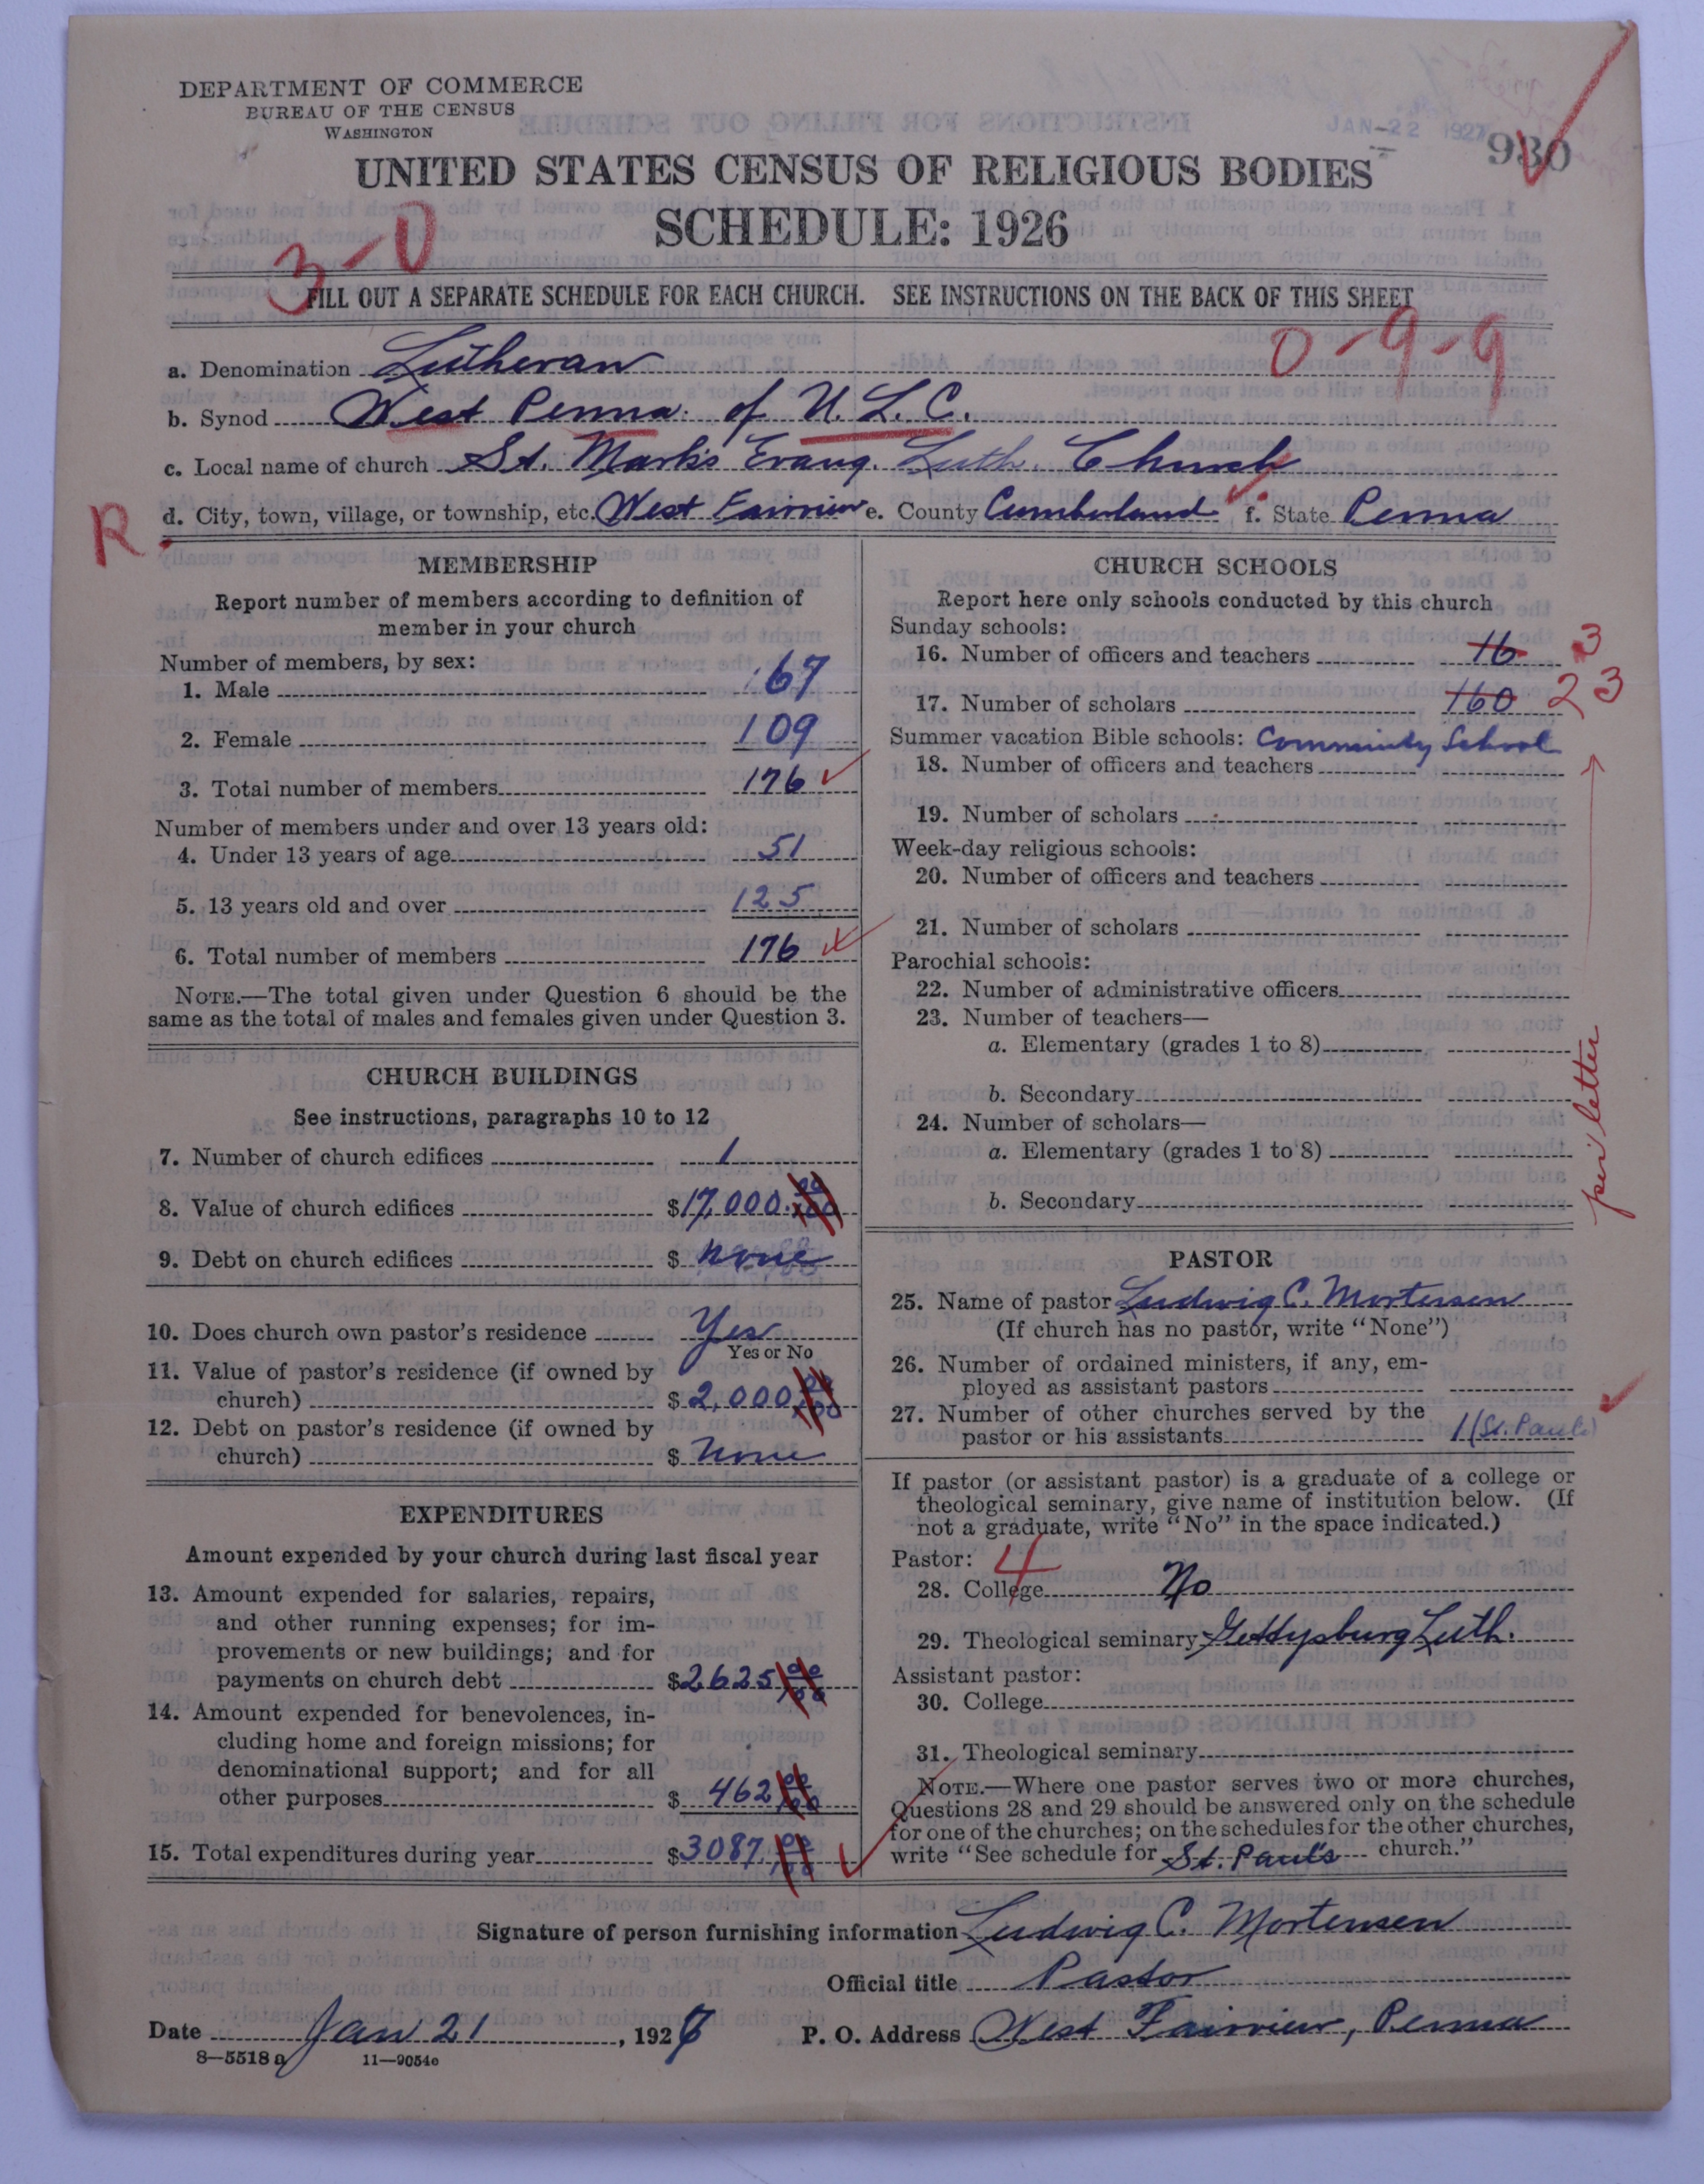 DEPARTMENT OF COMMERCE
BUREAU OF THE CENSUS
WASHINGTON
JAN-22 1927
930
UNITED STATES CENSUS OF RELIGIOUS BODIES
SCHEDULE: 1926
3-0
FILL OUT A SEPARATE SCHEDULE FOR EACH CHURCH. SEE INSTRUCTIONS ON THE BACK OF THIS SHEET
0-9-9
a. Denomination Lutheran
b. Synod West Penna. of U. L. C.
c. Local name of church St. Mark's Evang. Luth. Church
R d. City, town, village, or township, etc. West Fairview e. County Cumberland f. State Penna
MEMBERSHIP
Report number of members according to definition of
member in your church
Number of members, by sex:
1. Male 67
2. Female 109
3. Total number of members 176
Number of members under and over 13 years old:
4. Under 13 years of age 51
5. 13 years old and over 125
6. Total number of members 176
NOTE.—The total given under Question 6 should be the
same as the total of males and females given under Question 3.
CHURCH BUILDINGS
See instructions, paragraphs 10 to 12
7. Number of church edifices 1
8. Value of church edifices $17,000.00/100
9. Debt on church edifices $ None
10. Does church own pastor's residence Yes
Yes or No
11. Value of pastor's residence (if owned by
church) $2,000 00/100
12. Debt on pastor's residence (if owned by
church) $ None
EXPENDITURES
Amount expended by your church during last fiscal year
13. Amount expended for salaries, repairs,
and other running expenses; for im-
provements or new buildings; and for
payments on church debt $2625 00/100
14. Amount expended for benevolences, in-
cluding home and foreign missions; for
denominational support; and for all
other purposes $ 462 00/100
15. Total expenditures during year $3087.00/100
CHURCH SCHOOLS
Report here only schools conducted by this church
Sunday schools:
16. Number of officers and teachers 16 3
17. Number of scholars 160 23
Summer vacation Bible schools: Community School
18. Number of officers and teachers
19. Number of scholars
Week-day religious schools:
20. Number of officers and teachers
21. Number of scholars
Parochial schools:
22. Number of administrative officers
23. Number of teachers—
a. Elementary (grades 1 to 8)
b. Secondary
24. Number of scholars—
a. Elementary (grades 1 to 8)
b. Secondary
per letter
PASTOR
25. Name of pastor Ludwig C. Mortensen
(If church has no pastor, write "None")
26. Number of ordained ministers, if any, em-
ployed as assistant pastors
27. Number of other churches served by the
pastor or his assistants 1 (St. Paul's)
If pastor (or assistant pastor) is a graduate of a college or
theological seminary, give name of institution below. (If
not a graduate, write "No" in the space indicated.)
Pastor: 4
28. College No
29. Theological seminary Gettysburg Luth.
Assistant pastor:
30. College
31. Theological seminary
NOTE.—Where one pastor serves two or more churches,
Questions 28 and 29 should be answered only on the schedule
for one of the churches; on the schedules for the other churches,
write "See schedule for St. Paul's church."
Signature of person furnishing information Ludwig C. Mortensen
Official title Pastor
Date Jan 21, 1927 P. O. Address West Fairview, Penna
8—5518 a 11—9054c